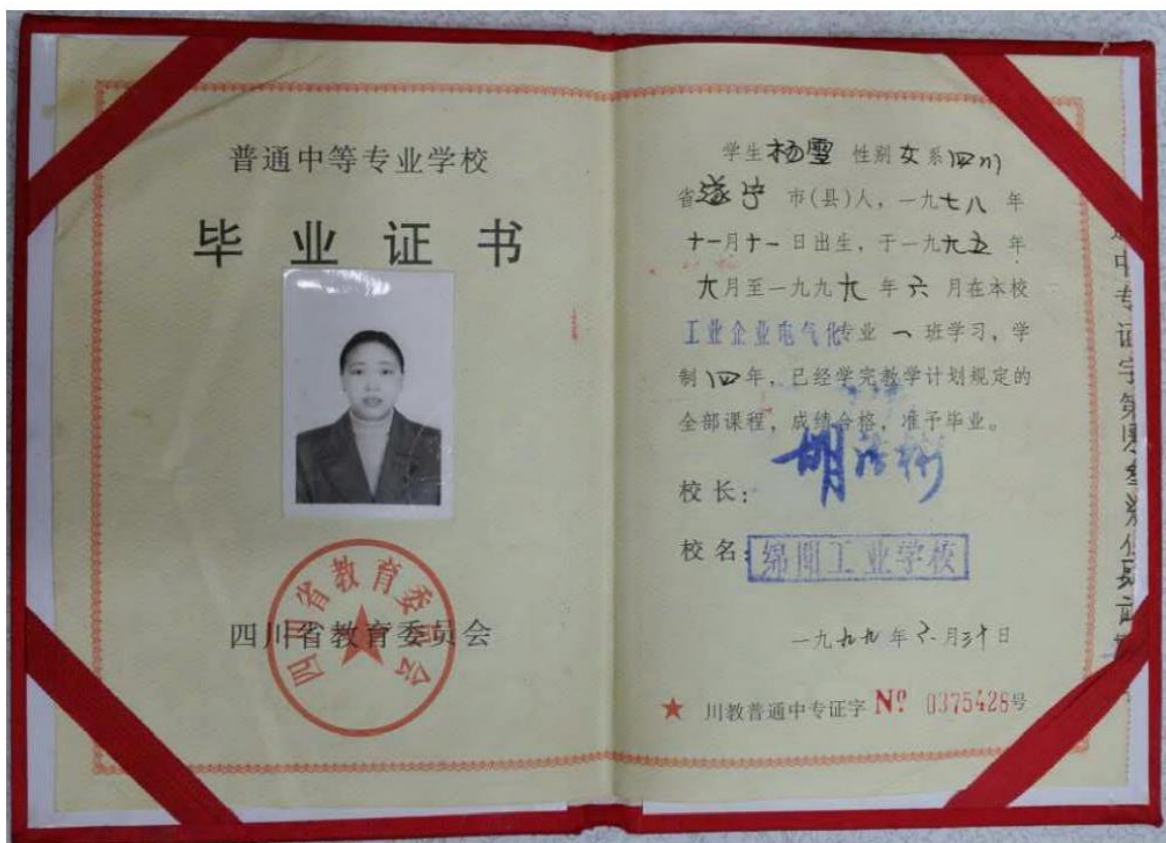 普通中等专业学校
毕业证书
四川省教育委员会
四川省教育委员会
学生杨雪 性别女系四川
省遂宁市(县)人，一九七八年
十一月十一日出生，于一九九五年
九月至一九九九年六月在本校
工业企业电气化专业一班学习，学
制四年，已经学完教学计划规定的
全部课程，成绩合格，准予毕业。
校长：
校名：绵阳工业学校
一九九九年六月三十日
川教普通中专证字 № 0375428号
中专证字第